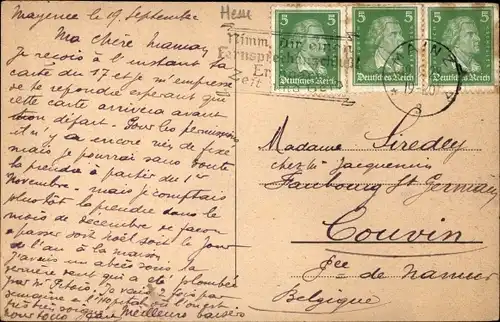 Mayence le 19 Septembre
Hesse
Ma chère Maman
Je reçois à l'instant la
carte du 17 et je m'empresse
de te répondre espérant que
cette carte arrivera avant
ton départ. Pour les permissions
il n'y a encore rien de fixé
mais je pourrais sans doute
la prendre à partir du 1er
Novembre - mais je comptais
plutôt la prendre dans le
mois de décembre de façon
à passer soit noël soit le jour
de l'an à la maison
J'avais un abcès sous la
dernière dent qui a été plombée
par Mr
semaine à l'Hopital où l'on est
très bien soigné
Meilleurs baisers
5 5 5
Deutsches Reich Deutsches Reich Deutsches Reich
Nimm Dir einen
Fernsprecher
Zeit
MAINZ
Madame Siredey
chez Mr Jacquemin
Faubourg St Germain
Couvin
Pce de Namur
Belgique